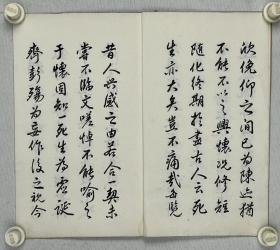 欣俛仰之间已为陈迹犹
不能不以之興懷况修短
随化终期於盡古人云死
生亦大矣豈不痛哉每覧
昔人興感之由若合一契未
嘗不临文嗟悼不能喻之
于懷固知一死生為虚诞
齊彭殇为妄作後之视今